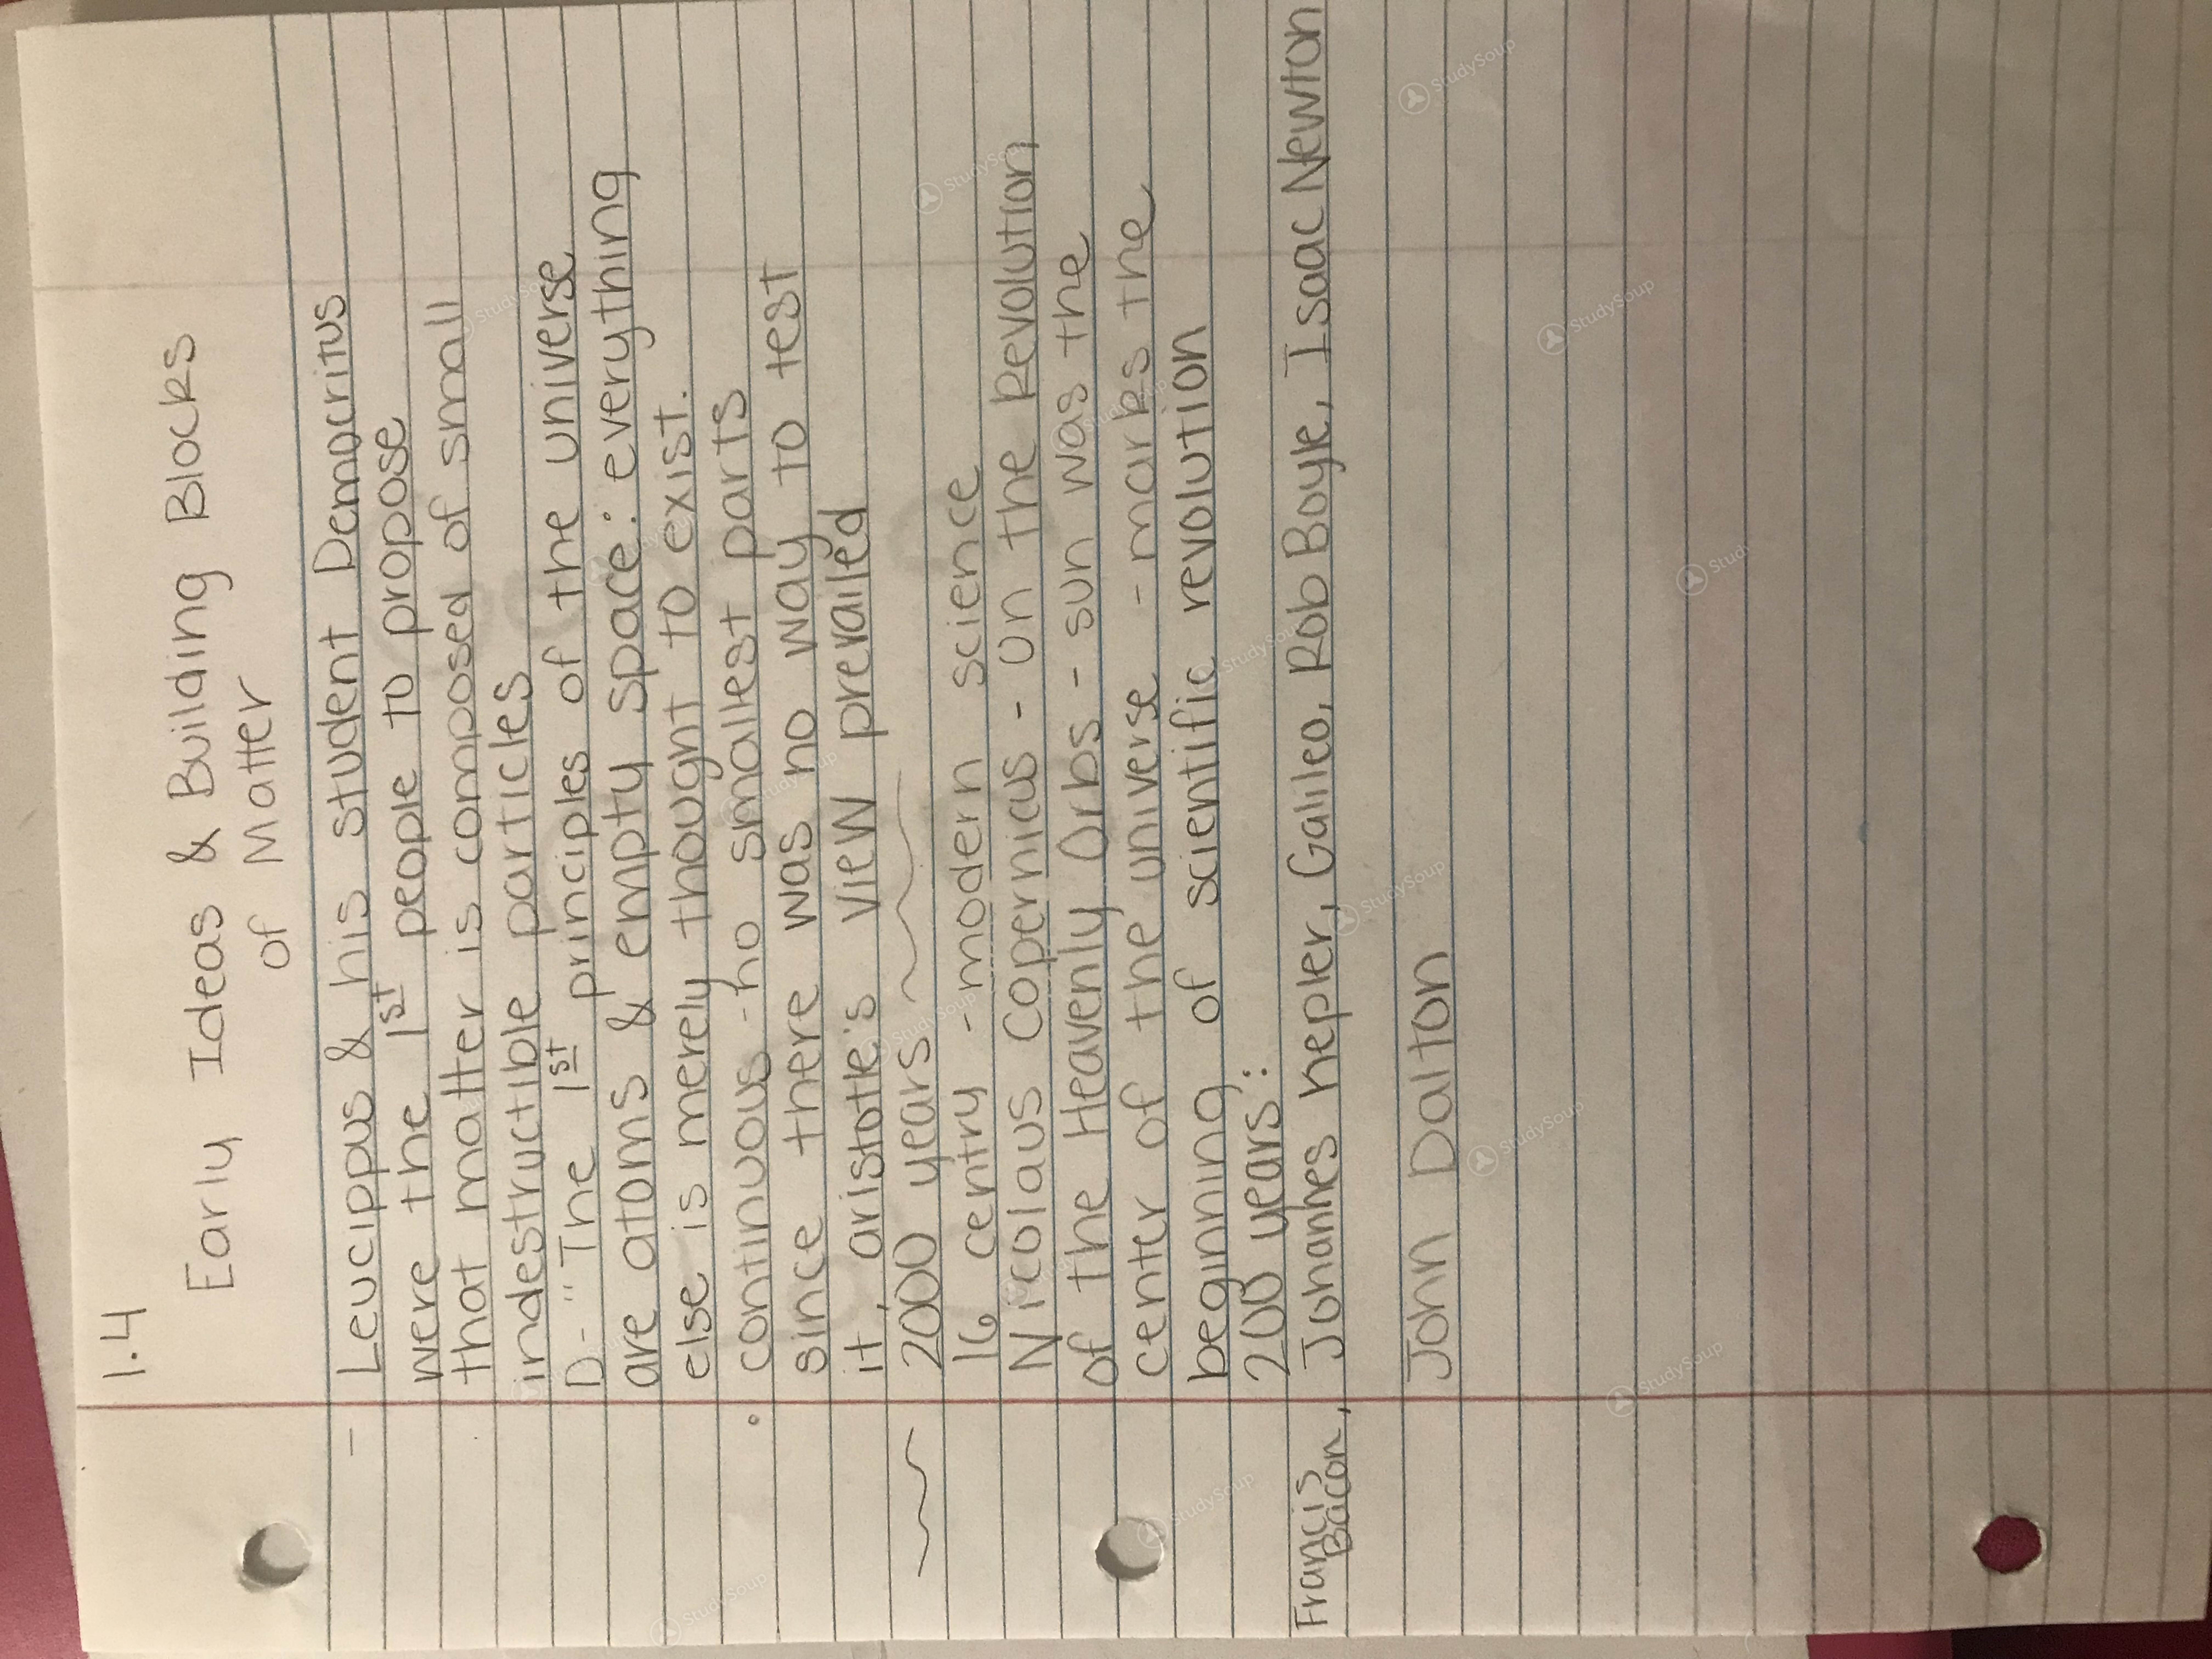 1.4
Early Ideas & Building Blocks
of Matter
- Leucippus & his student Democritus
were the 1st people to propose
that matter is composed of small
indestructible particles
D- "The 1st principles of the universe
are atoms & empty space: everything
else is merely thought to exist.
• continuous - no smallest parts
since there was no way to test
it, aristotle's view prevailed
2000 years
16 centry - modern science
Nicolaus Copernicus - On the Revolution
of the Heavenly Orbs - sun was the
center of the universe - marks the
beginning of scientific revolution
200 years:
Francis Bacon, Johanhes hepler, Galileo, Rob Boyle, Isaac Newton
John Dalton
StudySoup